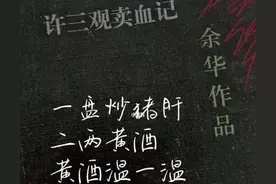 许三观卖血记
余华作品
一盘炒猪肝
二两黄酒
黄酒温一温